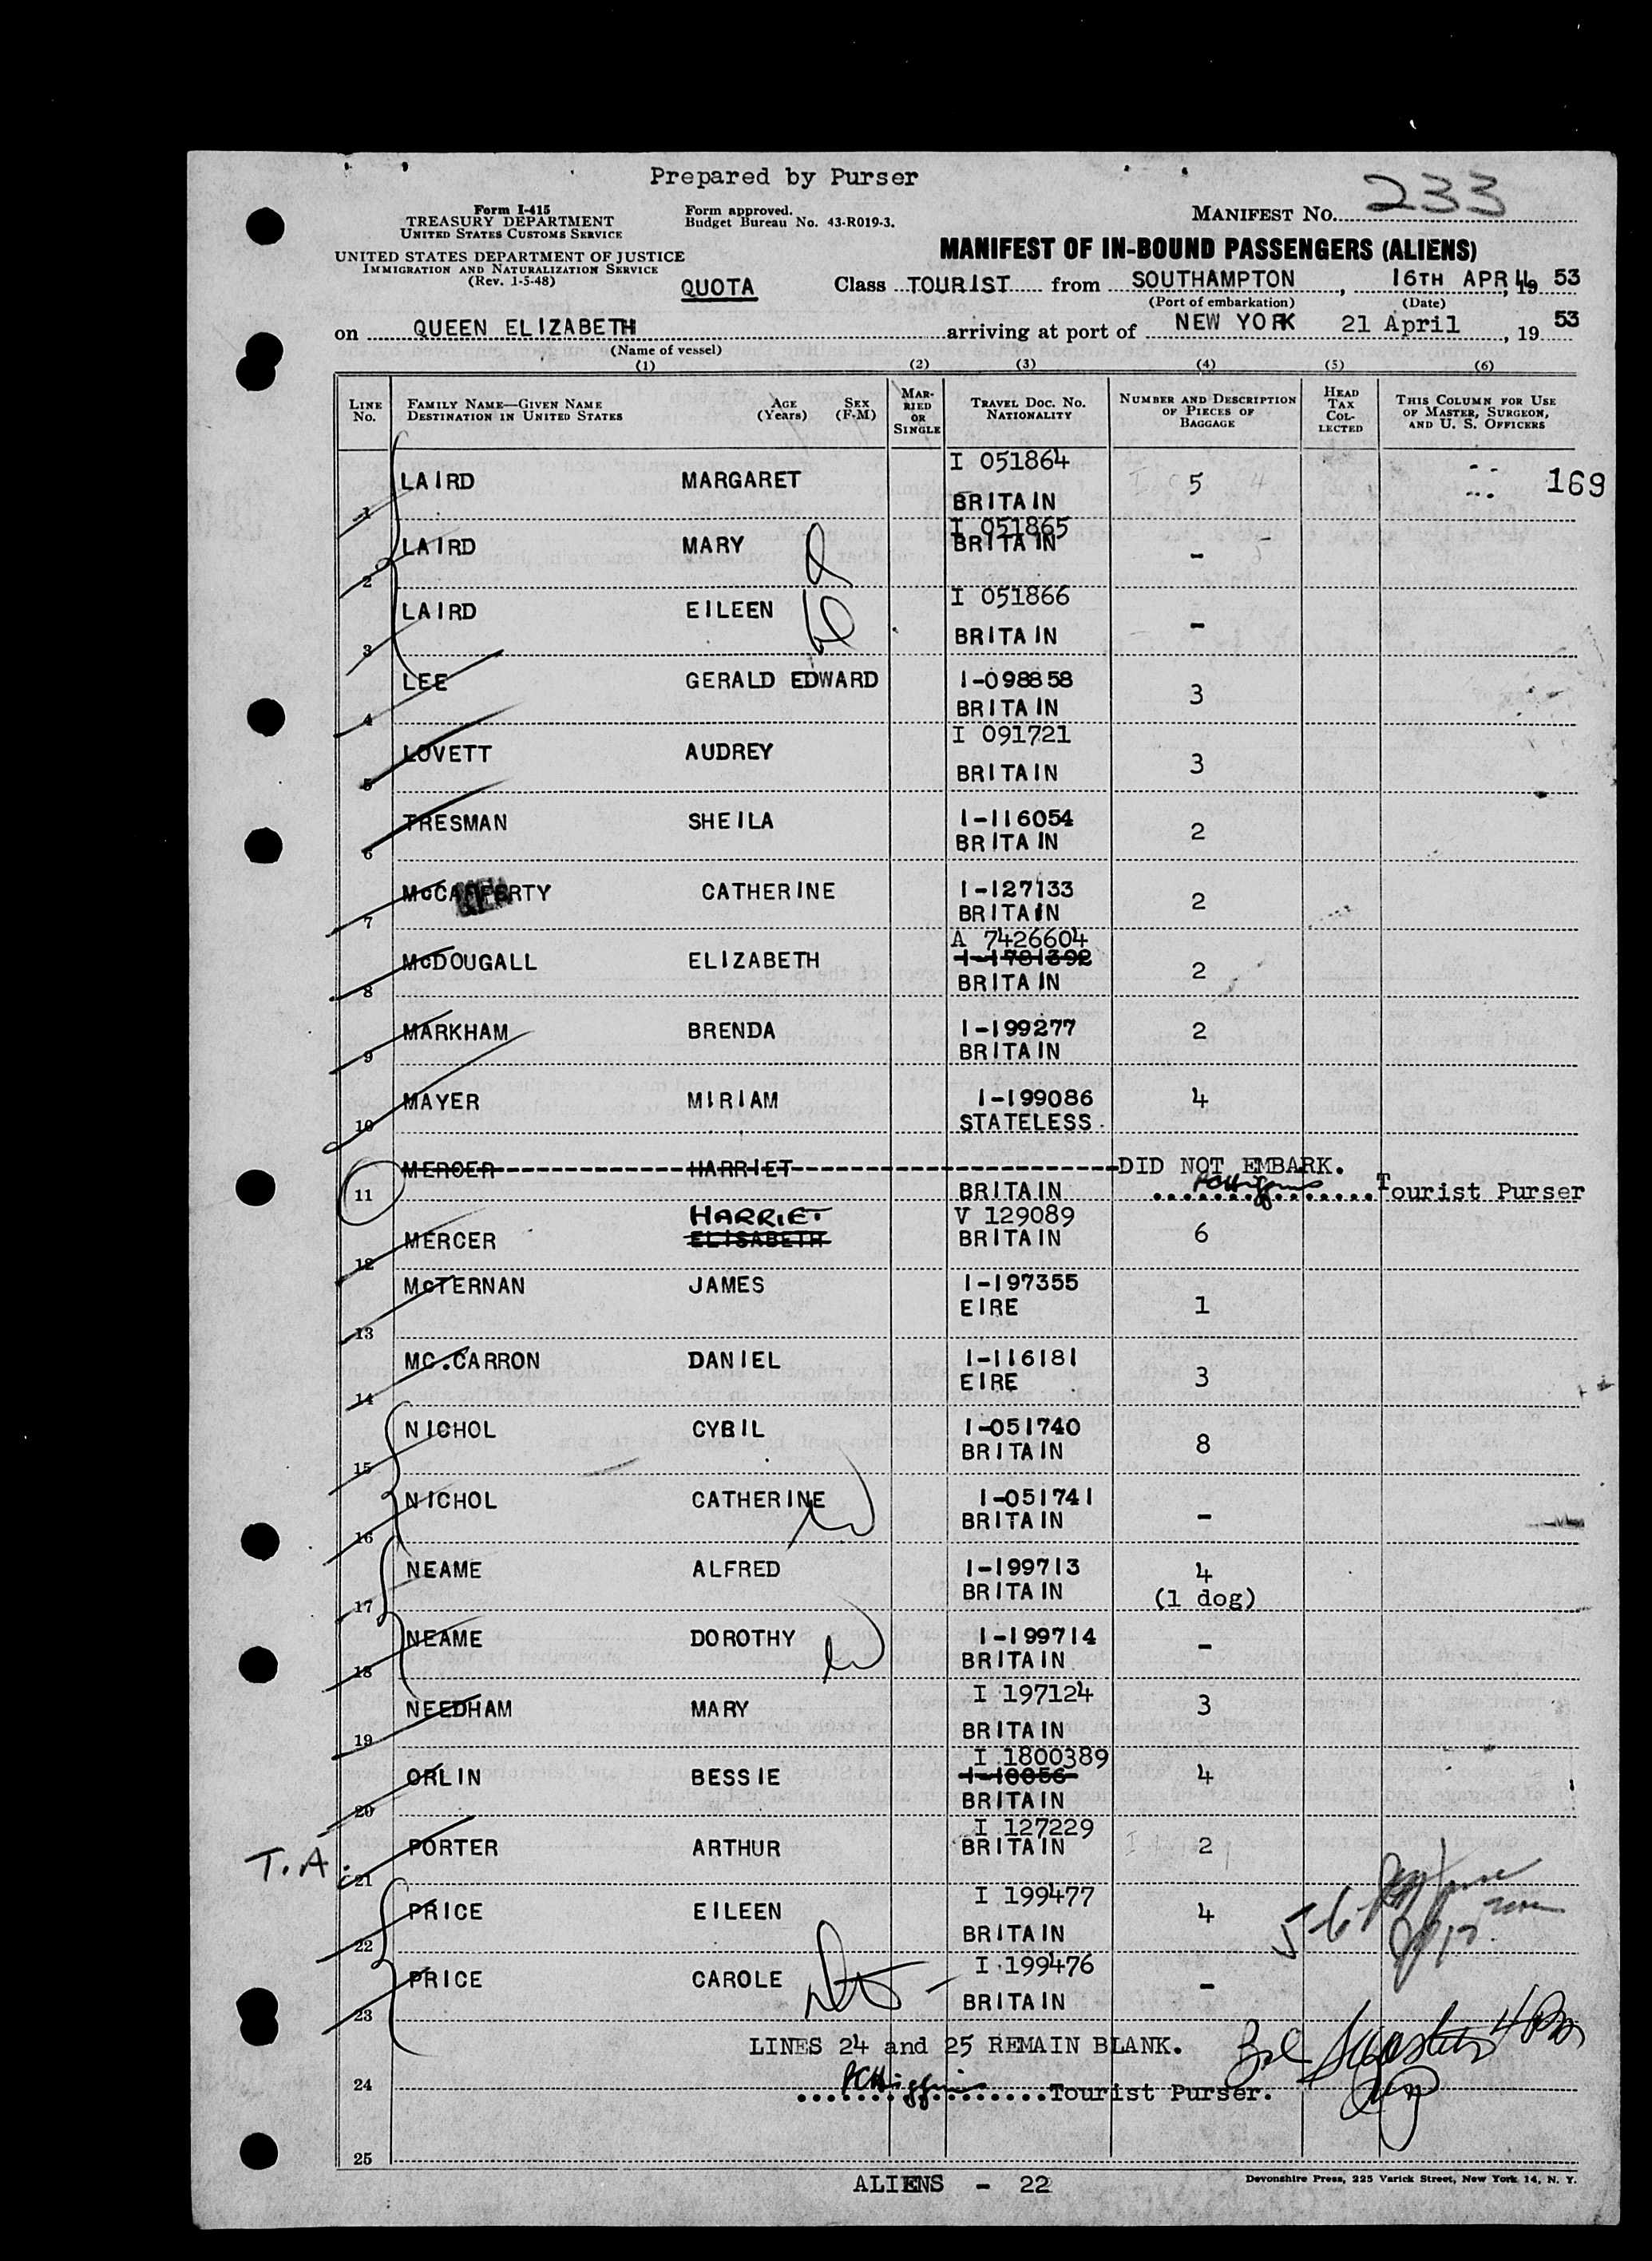 Prepared by Purser
233
Form I-415
TREASURY DEPARTMENT
UNITED STATES CUSTOMS SERVICE
Form approved.
Budget Bureau No. 43-R019-3.
MANIFEST No.
UNITED STATES DEPARTMENT OF JUSTICE
IMMIGRATION AND NATURALIZATION SERVICE
(Rev. 1-5-48)
MANIFEST OF IN-BOUND PASSENGERS (ALIENS)
QUOTA Class TOURIST from SOUTHAMPTON, 16TH APR, 19 53
(Port of embarkation) (Date)
on QUEEN ELIZABETH arriving at port of NEW YORK 21 April, 19 53
(Name of vessel)
(1) (2) (3) (4) (5) (6)
LINE No. FAMILY NAME—GIVEN NAME DESTINATION IN UNITED STATES AGE (Years) SEX (F-M) MARRIED OR SINGLE TRAVEL DOC. No. NATIONALITY NUMBER AND DESCRIPTION OF PIECES OF BAGGAGE HEAD TAX COLLECTED THIS COLUMN FOR USE OF MASTER, SURGEON, AND U. S. OFFICERS
1 LAIRD MARGARET I 051864 BRITAIN 5 169
2 LAIRD MARY I 051865 BRITAIN -
3 LAIRD EILEEN I 051866 BRITAIN -
4 LEE GERALD EDWARD I-098858 BRITAIN 3
5 LOVETT AUDREY I 091721 BRITAIN 3
6 TRESMAN SHEILA I-116054 BRITAIN 2
7 McCAFFERTY CATHERINE I-127133 BRITAIN 2
8 McDOUGALL ELIZABETH A 7426604 I-1781392 BRITAIN 2
9 MARKHAM BRENDA I-199277 BRITAIN 2
10 MAYER MIRIAM I-199086 STATELESS. 4
11 MERCER HARRIET DID NOT EMBARK.
BRITAIN PCHiggins Tourist Purser
12 MERCER HARRIET ELISABETH V 129089 BRITAIN 6
13 McTERNAN JAMES I-197355 EIRE 1
14 MC.CARRON DANIEL I-116181 EIRE 3
15 NICHOL CYBIL I-051740 BRITAIN 8
16 NICHOL CATHERINE I-051741 BRITAIN -
17 NEAME ALFRED I-199713 BRITAIN 4 (1 dog)
18 NEAME DOROTHY I-199714 BRITAIN -
19 NEEDHAM MARY I 197124 BRITAIN 3
20 ORLIN BESSIE I 1800389 I-18056 BRITAIN 4
T.A. 21 PORTER ARTHUR I 127229 BRITAIN 2
22 PRICE EILEEN I 199477 BRITAIN 4
23 PRICE CAROLE I 199476 BRITAIN -
LINES 24 and 25 REMAIN BLANK.
24 PCHiggins Tourist Purser.
25
ALIENS - 22
Devonshire Press, 225 Varick Street, New York 14, N. Y.